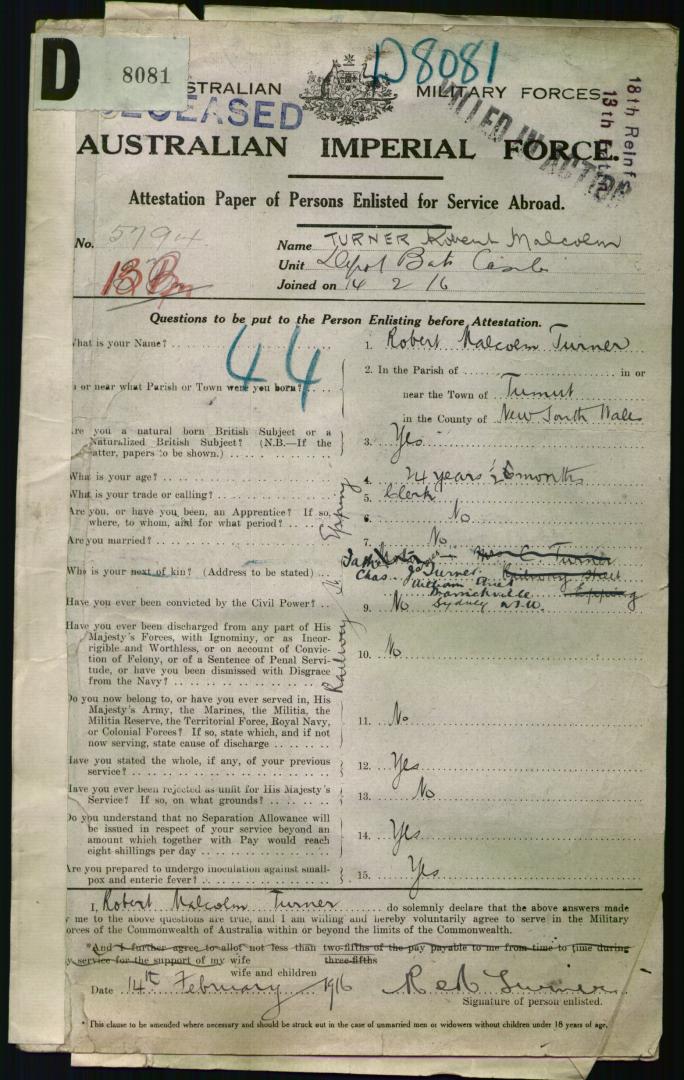 D 8081
D8081
STRALIAN MILITARY FORCES.
DECEASED
KILLED IN ACTION
18th Reinf
13th
AUSTRALIAN IMPERIAL FORCE.
Attestation Paper of Persons Enlisted for Service Abroad.
No. 5794
Name TURNER Robert Malcolm
13 Bn
Unit Depot Bat
Joined on 14 2 16
Questions to be put to the Person Enlisting before Attestation.
44
What is your Name? 1. Robert Malcolm Turner
n or near what Parish or Town were you born? 2. In the Parish of in or
near the Town of Tumut
in the County of New South Wales
re you a natural born British Subject or a
Naturalized British Subject? (N.B.—If the
atter, papers to be shown.) 3. Yes
What is your age? 4. 24 years months
What is your trade or calling? 5. Clerk
Are you, or have you been, an Apprentice? If so,
where, to whom, and for what period? 6. No
Are you married? 7. No
Who is your next of kin? (Address to be stated)
Mrs C. Turner
Chas. Turner Railway Street
William Street Epping
Marrickville
Sydney N.S.W.
Railway St Epping
Have you ever been convicted by the Civil Power? 9. No
Have you ever been discharged from any part of His
Majesty's Forces, with Ignominy, or as Incor-
rigible and Worthless, or on account of Convic-
tion of Felony, or of a Sentence of Penal Servi-
tude, or have you been dismissed with Disgrace
from the Navy? 10. No
Do you now belong to, or have you ever served in, His
Majesty's Army, the Marines, the Militia, the
Militia Reserve, the Territorial Force, Royal Navy,
or Colonial Forces? If so, state which, and if not
now serving, state cause of discharge 11. No
Have you stated the whole, if any, of your previous
service? 12. Yes
Have you ever been rejected as unfit for His Majesty's
Service? If so, on what grounds? 13. No
Do you understand that no Separation Allowance will
be issued in respect of your service beyond an
amount which together with Pay would reach
eight shillings per day 14. Yes
Are you prepared to undergo inoculation against small-
pox and enteric fever? 15. Yes
I, Robert Malcolm Turner do solemnly declare that the above answers made
y me to the above questions are true, and I am willing and hereby voluntarily agree to serve in the Military
orces of the Commonwealth of Australia within or beyond the limits of the Commonwealth.
*And I further agree to allot not less than two-fifths of the pay payable to me from time to time during
three-fifths
y service for the support of my wife
wife and children
Date 14th February 1916 R M Turner
Signature of person enlisted.
* This clause to be amended where necessary and should be struck out in the case of unmarried men or widowers without children under 18 years of age.